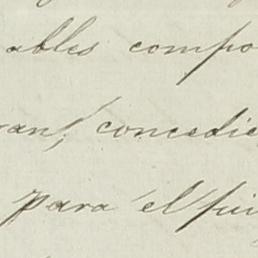 ables compo
ran, concedie
para el fui